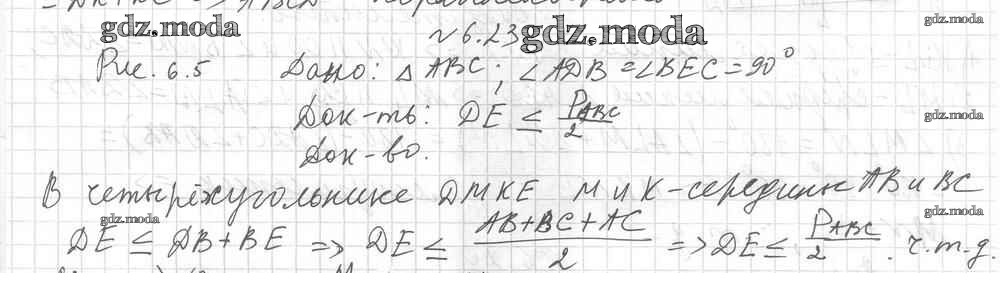 gdz.moda
gdz.moda
№ 6.23
gdz.moda
Рис. 6.5 Дано: △ ABC; ∠ADB = ∠BEC = 90°
gdz.moda
Док-ть: DE ≤ P_ABC/2
gdz.moda
Док-во.
В четырёхугольнике DMKE M и K - середины AB и BC
gdz.moda
gdz.moda
DE ≤ DB + BE => DE ≤ (AB + BC + AC)/2 => DE ≤ P_ABC/2. ч.т.д.